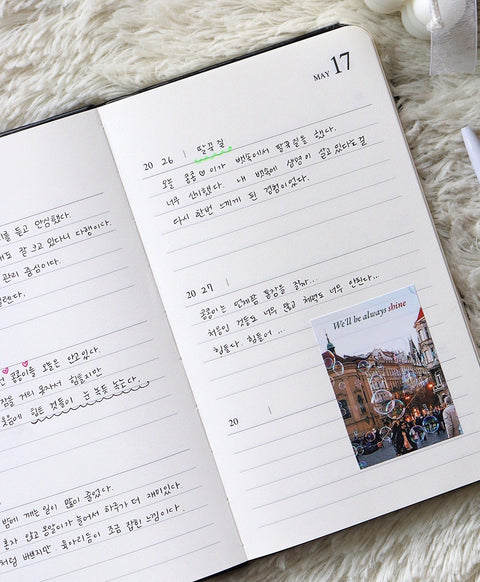 를 듣고 안심됐다.
도 잘 크고 있다니 다행이다.
관리 중심이다.
콩콩이를 오늘은 안고있다.
잠을 거의 못자서 힘들지만
웃음에 힘든 것들이 눈 녹듯 녹는다.
밤에 깨는 일이 많이 줄었다.
혼자 앉고 옹알이가 늘어서 하루가 더 재미있다.
처럼 바쁘지만 육아리듬이 조금 잡힌 느낌이다.
MAY 17
20 26 | 딸꾹질
오늘 콩콩♡이가 뱃속에서 딸꾹질을 했다.
너무 신기했다. 내 뱃속에 생명이 살고있다는걸
다시 한번 느끼게 된 경험이었다.
20 27 |
콩콩이는 언제쯤 통잠을 잘까...
처음인 것들도 너무 많고 체력도 너무 안된다...
힘들다. 힘들어...
We'll be always shine
20 |